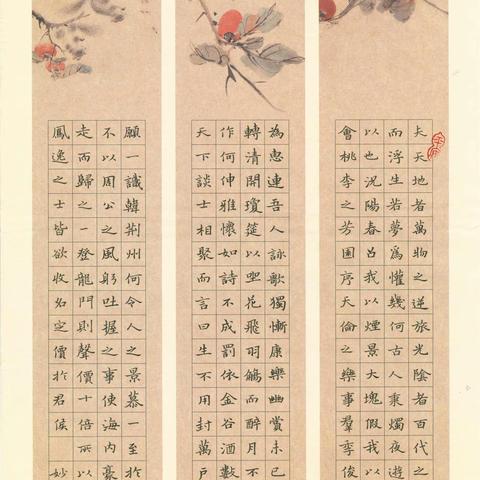 夫天地者萬物之逆旅光陰者百代之
而浮生若夢爲懽幾何古人秉燭夜遊
以也況陽春召我以煙景大塊假我以
會桃李之芳園序天倫之樂事羣季俊
為惠連吾人詠歌獨慚康樂幽賞未已
轉清開瓊筵以坐花飛羽觴而醉月不
作何伸雅懷如詩不成罰依金谷酒數
天下談士相聚而言曰生不用封萬戶
願一識韓荆州何令人之景慕一至於
不以周公之風躬吐握之事使海內豪
走而歸之一登龍門則聲價十倍所以
鳳逸之士皆欲收名定價於君侯 妙